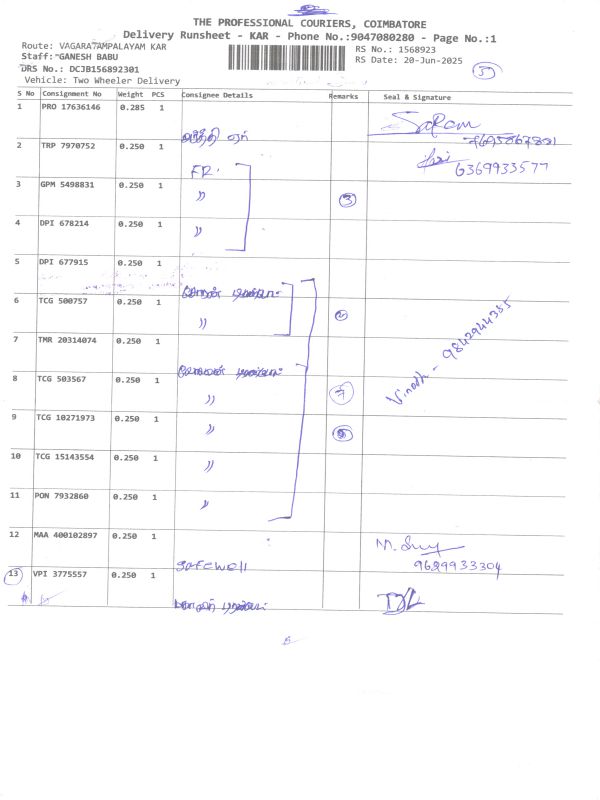 THE PROFESSIONAL COURIERS, COIMBATORE
Delivery Runsheet - KAR - Phone No.:9047080280 - Page No.:1
Route: VAGARATAMPALAYAM KAR
RS No.: 1568923
Staff: GANESH BABU
RS Date: 20-Jun-2025
5
DRS No.: DCJB156892301
Vehicle: Two Wheeler Delivery
S No Consignment No Weight PCS Consignee Details Remarks Seal & Signature
1 PRO 17636146 0.285 1
Saram
2 TRP 7970752 0.250 1
FR.
6369933577
3 GPM 5498831 0.250 1 〃 3
4 DPI 678214 0.250 1 〃
5 DPI 677915 0.250 1
6 TCG 500757 0.250 1 〃 2
7 TMR 20314074 0.250 1
Vinoth - 9842944355
8 TCG 503567 0.250 1 〃 7
9 TCG 10271973 0.250 1 〃
10 TCG 15143554 0.250 1 〃
11 PON 7932860 0.250 1 〃
12 MAA 400102897 0.250 1
safewell
9629933304
13 VPI 3775557 0.250 1